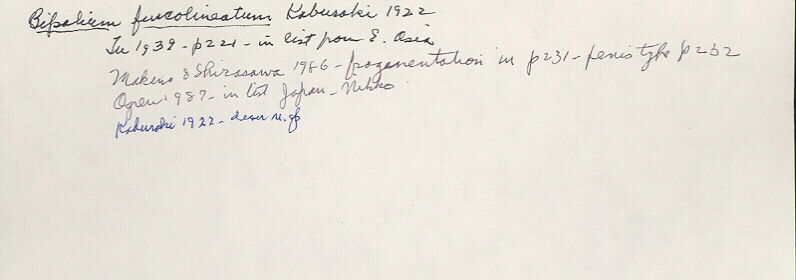 Bipalium fuscolineatum Kaburaki 1922
In 1939 - p221 - in list from E. Asia
Makino & Shirasawa 1986 - fragmentation in p231 - penis type p232
Ogren 1987 - in list Japan - Nikko
Kaburaki 1922 - descr n.sp